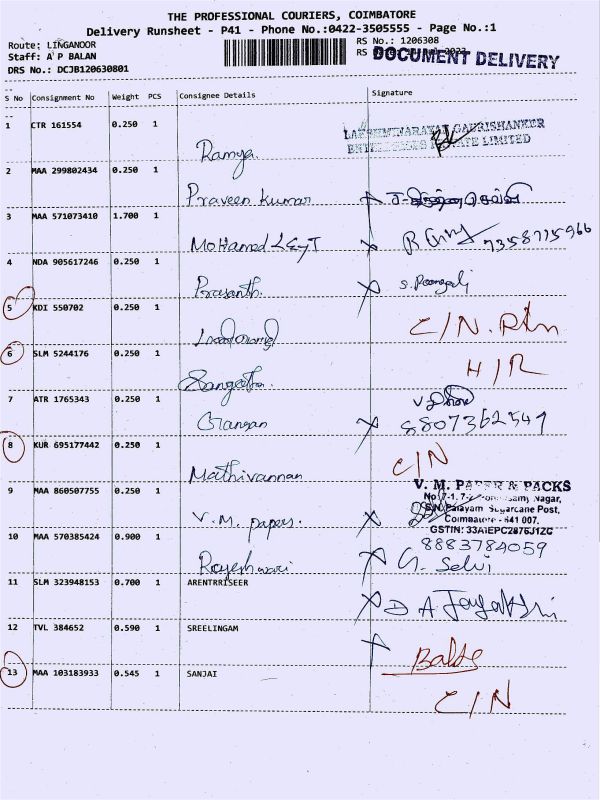 THE PROFESSIONAL COURIERS, COIMBATORE
Delivery Runsheet - P41 - Phone No.:0422-3505555 - Page No.:1
Route: LINGANOOR
RS No.: 1206308
Staff: A P BALAN
RS
DOCUMENT DELIVERY
DRS No.: DCJB120630801
S No Consignment No Weight PCS Consignee Details Signature
1 CTR 161554 0.250 1
LAKSHMINARAYAN GAURISHANKER
ENTERPRISES PRIVATE LIMITED
Ramya
2 MAA 299802434 0.250 1
Praveen Kumar X
3 MAA 571073410 1.700 1
Mohamed X 7358775966
4 NDA 905617246 0.250 1
Prasanth. X S.
5 KDI 550702 0.250 1
C/N. Rtn
6 SLM 5244176 0.250 1
H/R
Sangeetha
7 ATR 1765343 0.250 1
X 8807362549
8 KUR 695177442 0.250 1
C/N
Mathivannan
9 MAA 860507755 0.250 1
V. M. PAPER & PACKS
Nagar,
Palayam Sugarcane Post,
Coimbatore - 641 007.
GSTIN: 33AIEPC2876J1ZC
V.M. papers. X
8883784059
10 MAA 570385424 0.900 1
Rajeshwari X G. Selvi
11 SLM 323948153 0.700 1 ARENTRRISEER
X D A Jayakshri
12 TVL 384652 0.590 1 SREELINGAM
X
13 MAA 103183933 0.545 1 SANJAI
C/N